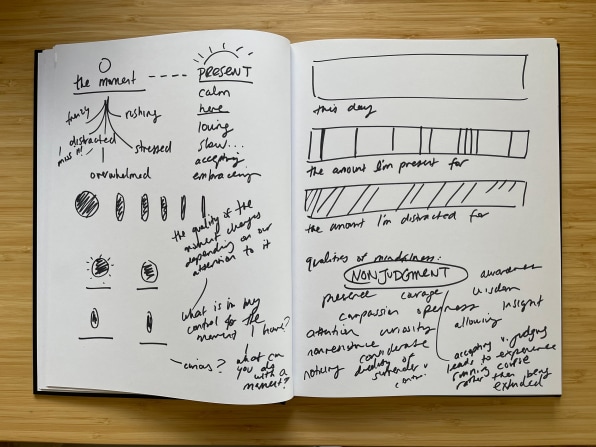 the moment
PRESENT
frenzy
rushing
distracted
I miss it!
stressed
overwhelmed
calm
here
loving
slow...
accepting
embracing
the quality of the
moment changes
depending on our
attention to it
what is in my
control for the
moment I have?
curious?
what can
you do
with a
moment?
this day
the amount I'm present for
the amount I'm distracted for
qualities of mindfulness:
NONJUDGMENT
awareness
presence courage wisdom
compassion openness insight
attention curiosity allowing
nonresistance considerate
noticing duality of
surrender v.
control
accepting v. judging
leads to experience
running course
rather than being
extended